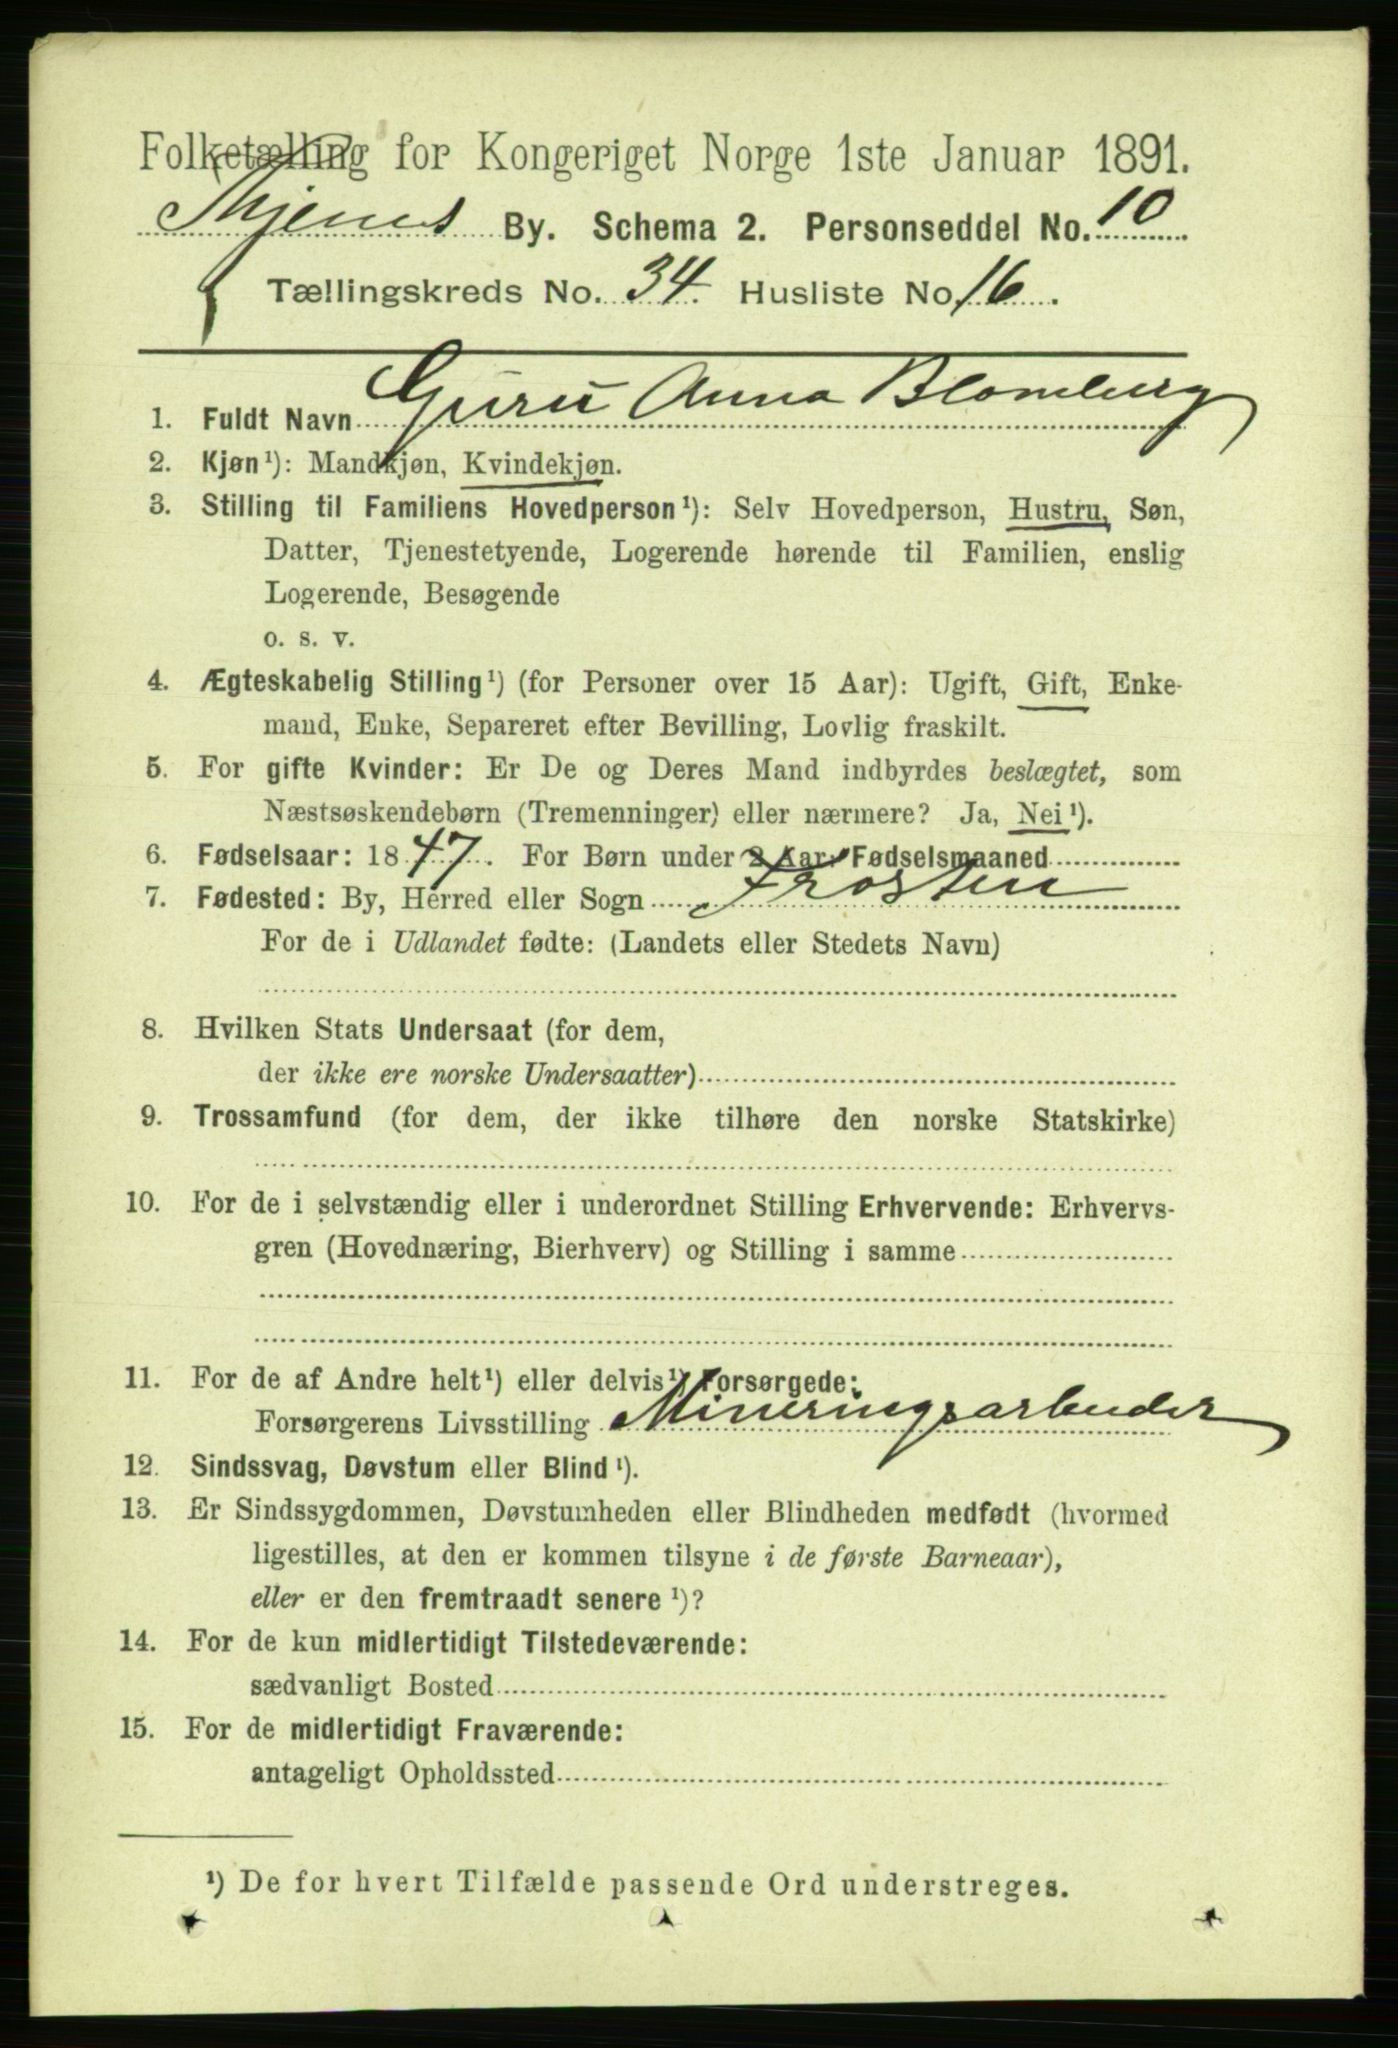 Folketælling for Kongeriget Norge 1ste Januar 1891.
Thjems By. Schema 2. Personseddel No. 10
Tællingskreds No. 34. Husliste No 16.
1. Fuldt Navn Guru Anna Blomberg
2. Kjøn¹): Mandkjøn, Kvindekjøn.
3. Stilling til Familiens Hovedperson¹): Selv Hovedperson, Hustru, Søn,
Datter, Tjenestetyende, Logerende hørende til Familien, enslig
Logerende, Besøgende
o. s. v.
4. Ægteskabelig Stilling¹) (for Personer over 15 Aar): Ugift, Gift, Enke-
mand, Enke, Separeret efter Bevilling, Lovlig fraskilt.
5. For gifte Kvinder: Er De og Deres Mand indbyrdes beslægtet, som
Næstsøskendebørn (Tremenninger) eller nærmere? Ja, Nei¹).
6. Fødselsaar: 1847. For Børn under 2 Aar: Fødselsmaaned
7. Fødested: By, Herred eller Sogn Frosten
For de i Udlandet fødte: (Landets eller Stedets Navn)
8. Hvilken Stats Undersaat (for dem,
der ikke ere norske Undersaatter)
9. Trossamfund (for dem, der ikke tilhøre den norske Statskirke)
10. For de i selvstændig eller i underordnet Stilling Erhvervende: Erhvervs-
gren (Hovednæring, Bierhverv) og Stilling i samme
11. For de af Andre helt¹) eller delvis¹) Forsørgede:
Forsørgerens Livsstilling Mineringsarbeider
12. Sindssvag, Døvstum eller Blind¹).
13. Er Sindssygdommen, Døvstumheden eller Blindheden medfødt (hvormed
ligestilles, at den er kommen tilsyne i de første Barneaar),
eller er den fremtraadt senere¹)?
14. For de kun midlertidigt Tilstedeværende:
sædvanligt Bosted
15. For de midlertidigt Fraværende:
antageligt Opholdssted
¹) De for hvert Tilfælde passende Ord understreges.